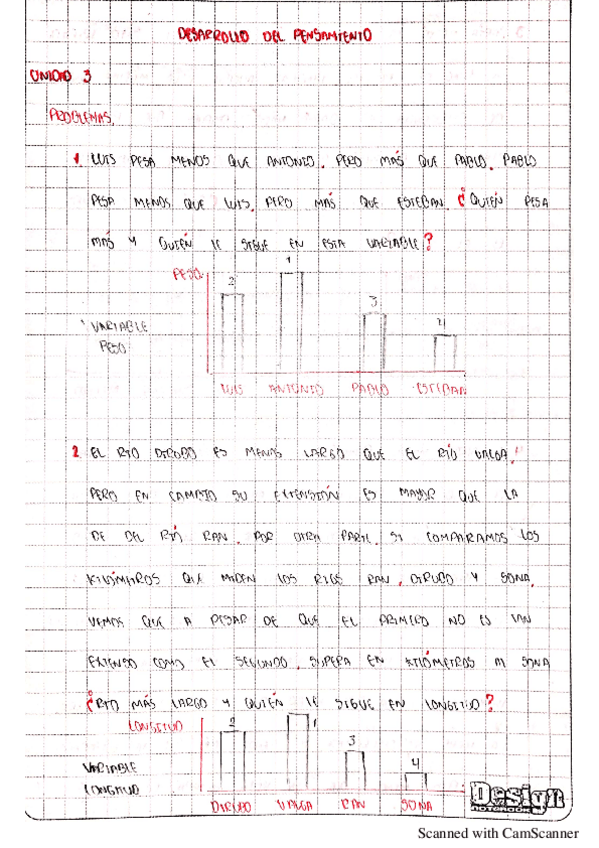 DESARROLLO DEL PENSAMIENTO
UNIDAD 3
PROBLEMAS.
1 LUIS PESA MENOS QUE ANTONIO, PERO MÁS QUE PABLO. PABLO
PESA MENOS QUE LUIS, PERO MÁS QUE ESTEBAN. ¿QUIÉN PESA
MÁS Y QUIÉN LE SIGUE EN ESTA VARIABLE?
PESO
2 1 3 4
VARIABLE
PESO
LUIS ANTONIO PABLO ESTEBAN
2 EL RÍO DIRUBO ES MENOS LARGO QUE EL RÍO VALGA,
PERO EN CAMBIO SU EXTENSIÓN ES MAYOR QUE LA
DE DEL RÍO RAN. POR OTRA PARTE, SI COMPARAMOS LOS
KILÓMETROS QUE MIDEN LOS RIOS RAN, DIRUBO Y SONA,
VEMOS QUE A PESAR DE QUE EL PRIMERO NO ES TAN
EXTENSO COMO EL SEGUNDO, SUPERA EN KILÓMETROS SONA
¿RÍO MÁS LARGO Y QUIÉN LE SIGUE EN LONGITUD?
LONGITUD
2 1 3 4
VARIABLE
LONGITUD
DIRUBO VALGA RAN SONA
Design
NOTEBOOK
Scanned with CamScanner